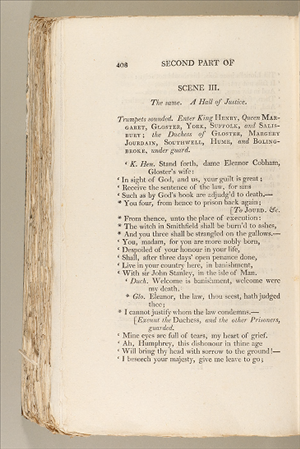 408 SECOND PART OF
SCENE III.
The same. A Hall of Justice.
Trumpets sounded. Enter King HENRY, Queen MAR-
GARET, GLOSTER, YORK, SUFFOLK, and SALIS-
BURY; the Duchess of GLOSTER, MARGERY
JOURDAIN, SOUTHWELL, HUME, and BOLING-
BROKE, under guard.
‘ K. Hen. Stand forth, dame Eleanor Cobham,
Gloster's wife:
‘ In sight of God, and us, your guilt is great;
‘ Receive the sentence of the law, for sins
‘ Such as by God's book are adjudg'd to death.—
* You four, from hence to prison back again;
[To JOURD. &c.
* From thence, unto the place of execution:
* The witch in Smithfield shall be burn'd to ashes,
* And you three shall be strangled on the gallows.—
‘ You, madam, for you are more nobly born,
‘ Despoiled of your honour in your life,
‘ Shall, after three days' open penance done,
‘ Live in your country here, in banishment,
‘ With sir John Stanley, in the isle of Man.
‘ Duch. Welcome is banishment, welcome were
my death.
* Glo. Eleanor, the law, thou seest, hath judged
thee;
* I cannot justify whom the law condemns.—
[Exeunt the Duchess, and the other Prisoners,
guarded.
‘ Mine eyes are full of tears, my heart of grief.
‘ Ah, Humphrey, this dishonour in thine age
‘ Will bring thy head with sorrow to the ground!—
‘ I beseech your majesty, give me leave to go;